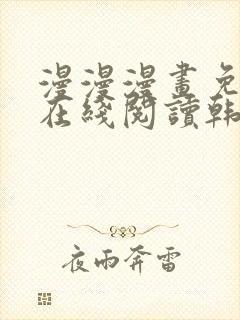 漫漫漫畫免
在綫閱讀韩
夜雨奔雷